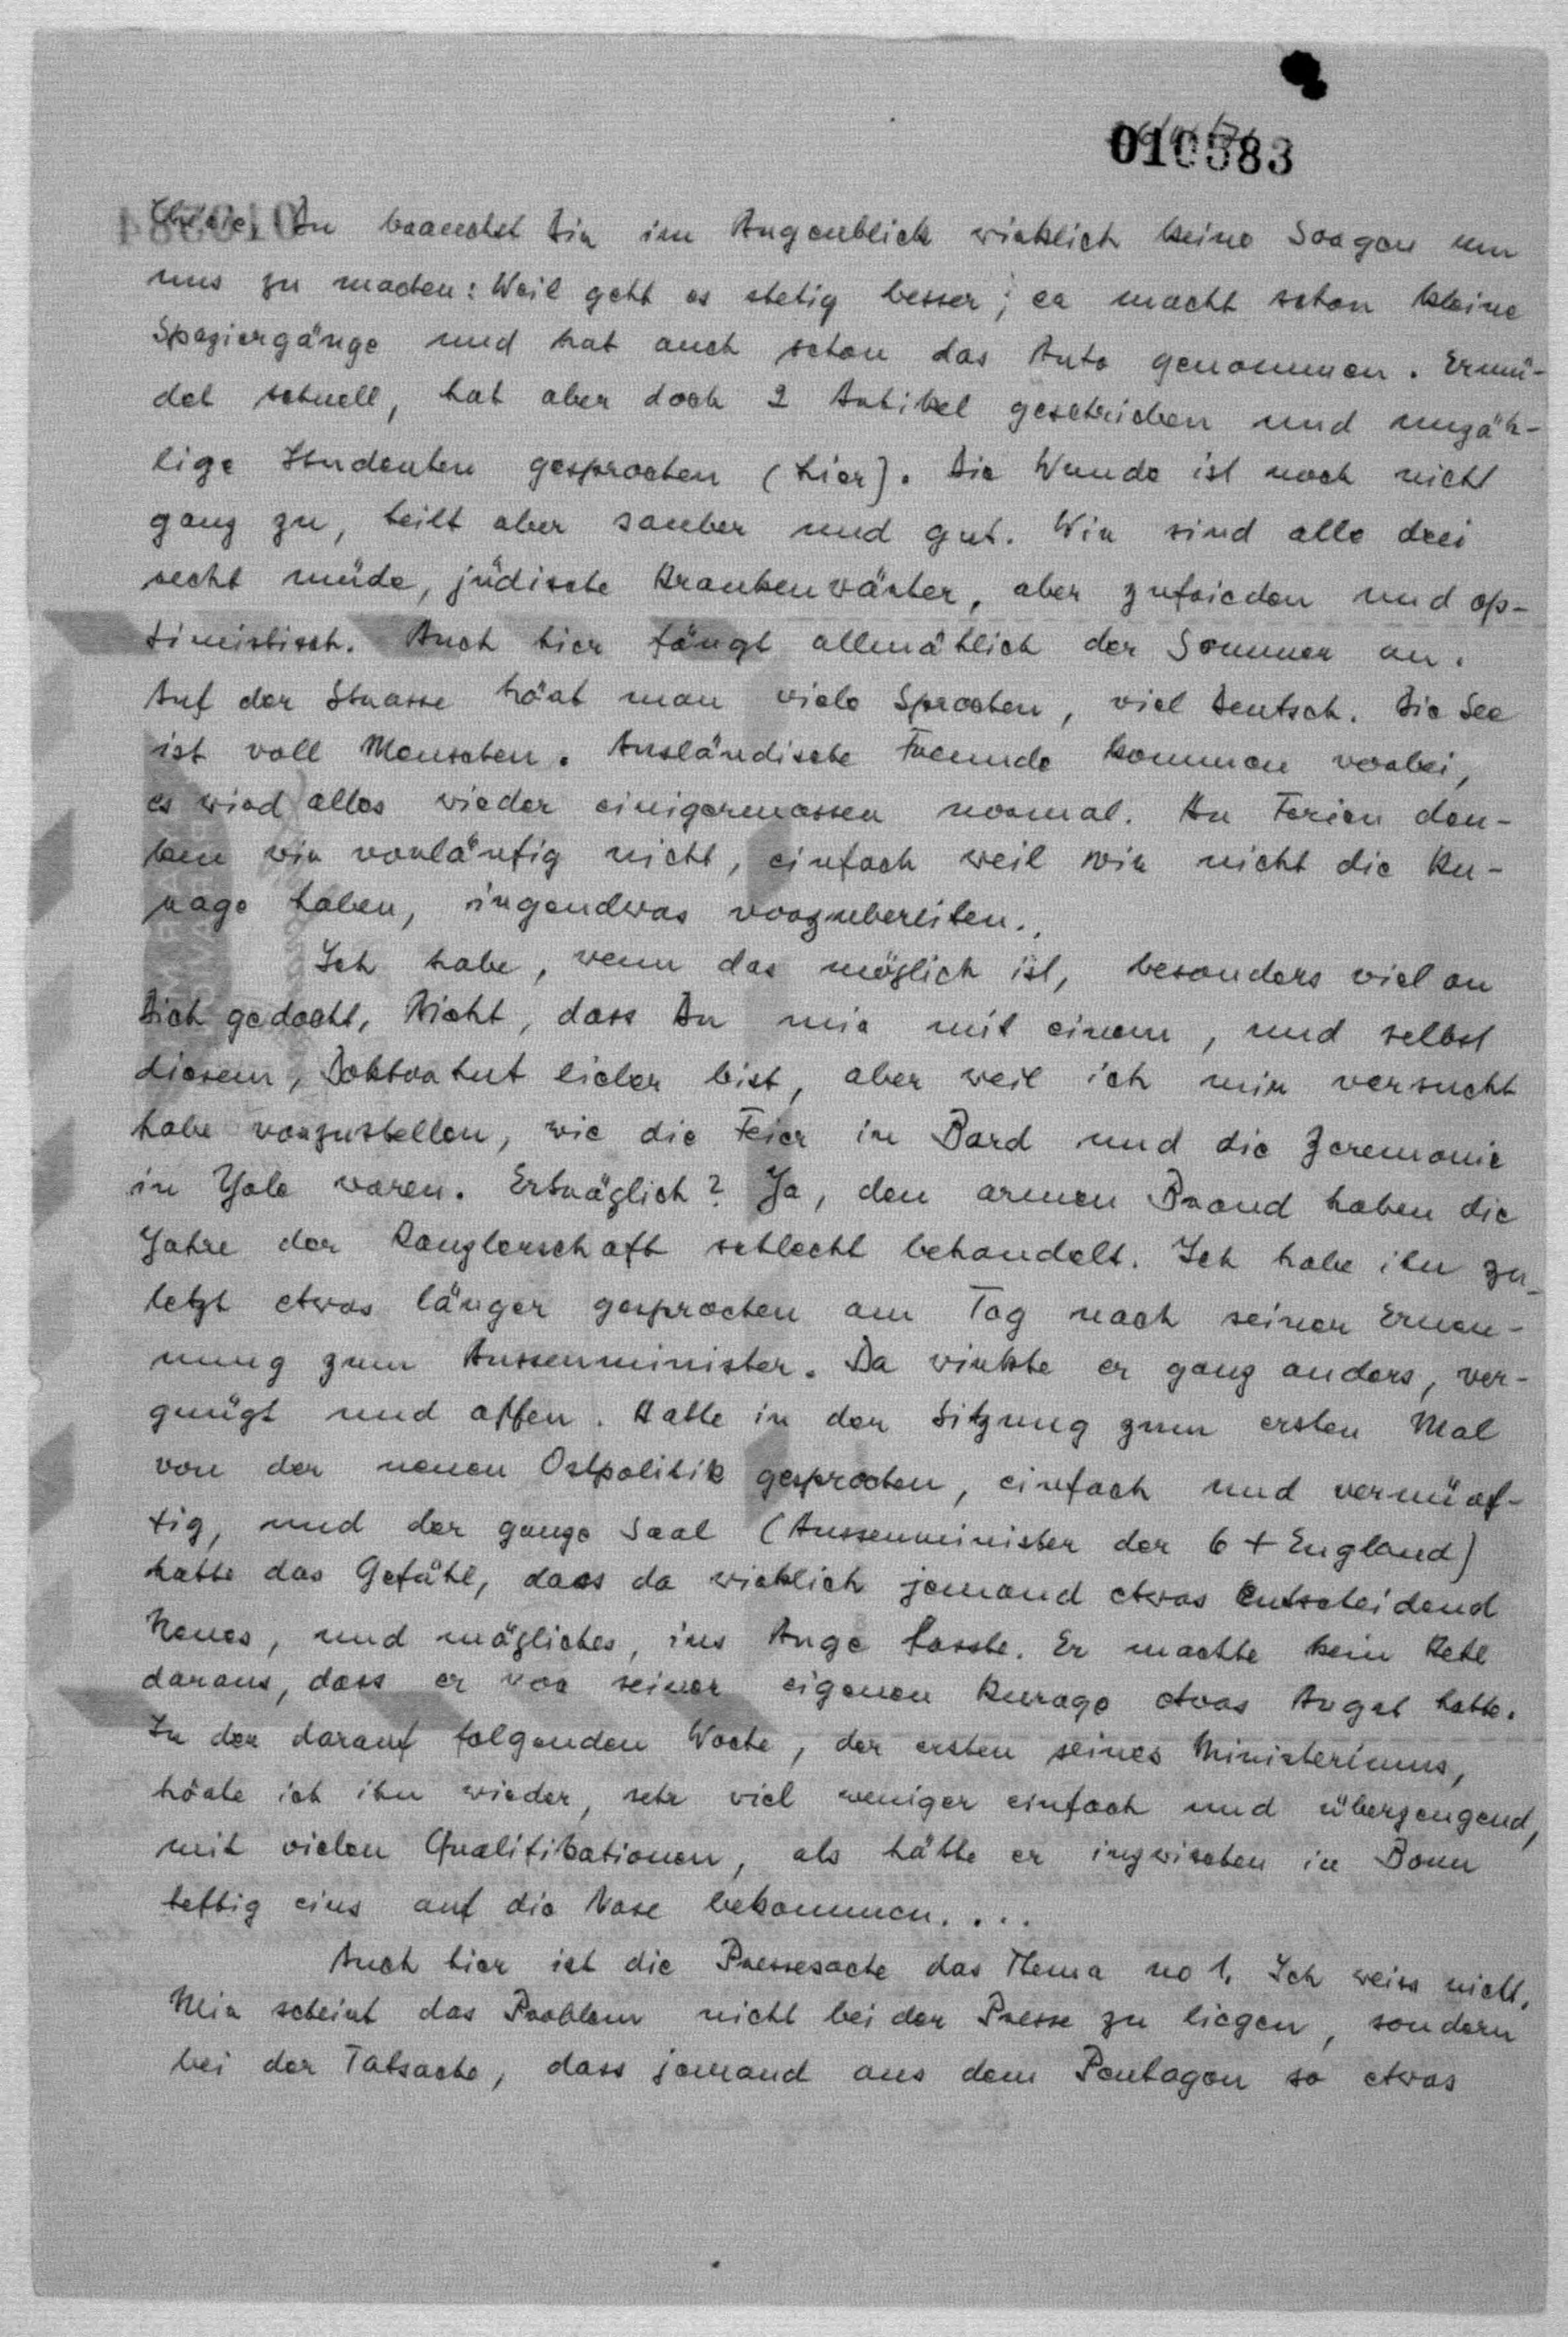 010583
Chérie, Du brauchst Dir im Augenblick wirklich keine Sorgen um
uns zu machen: Weil geht es stetig besser; er macht schon kleine
Spaziergänge und hat auch schon das Auto genommen. Ermü-
det schnell, hat aber doch 2 Artikel geschrieben und unzäh-
lige Studenten gesprochen (hier). Die Wunde ist noch nicht
ganz zu, heilt aber sauber und gut. Wir sind alle drei
recht müde, jüdische Krankenwärter, aber zufrieden und op-
timistisch. Auch hier fängt allmählich der Sommer an.
Auf der Strasse hört man viele Sprachen, viel Deutsch. Die See
ist voll Menschen. Ausländische Freunde kommen vorbei,
es wird alles wieder einigermassen normal. An Ferien den-
ken wir vorläufig nicht, einfach weil wir nicht die Ku-
rage haben, irgendwas vorzubereiten..
Ich habe, wenn das möglich ist, besonders viel an
Dich gedacht, Nicht, dass Du mir mit einem, und selbst
diesem, Doktorhut lieber bist, aber weil ich mir versucht
habe vorzustellen, wie die Feier in Bard und die Zeremonie
in Yale waren. Erträglich? Ja, den armen Brand haben die
Jahre der Kanzlerschaft schlecht behandelt. Ich habe ihn zu-
letzt etwas länger gesprochen am Tag nach seiner Ernen-
nung zum Aussenminister. Da wirkte er ganz anders, ver-
gnügt und offen. Hatte in der Sitzung zum ersten Mal
von der neuen Ostpolitik gesprochen, einfach und vernünf-
tig, und der ganze Saal (Aussenminister der 6 + England)
hatte das Gefühl, dass da wirklich jemand etwas Entscheidend
Neues, und mögliches, ins Auge fasste. Er machte kein Hehl
daraus, dass er vor seiner eigenen Kurage etwas Angst hatte.
In der darauf folgenden Woche, der ersten seines Ministeriums,
hörte ich ihn wieder, sehr viel weniger einfach und überzeugend,
mit vielen Qualifikationen, als hätte er inzwischen in Bonn
heftig eins auf die Nase bekommen....
Auch hier ist die Pressesache das Thema no 1. Ich weiss nicht.
Mir scheint das Problem nicht bei der Presse zu liegen, sondern
bei der Tatsache, dass jemand aus dem Pentagon so etwas